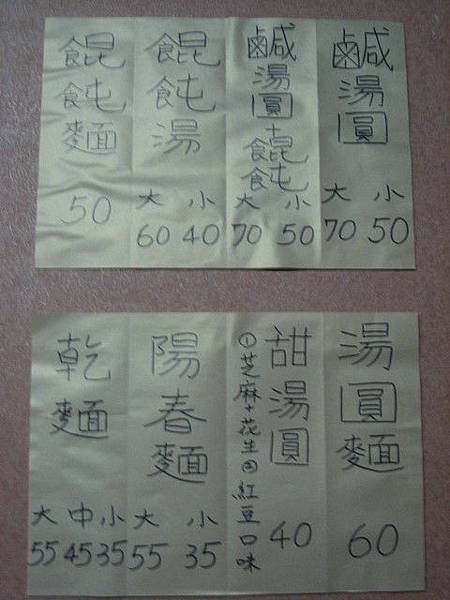 鹹湯圓
大 小
70 50
鹹湯圓+餛飩
大 小
70 50
餛飩湯
大 小
60 40
餛飩麵
50
湯圓麵
60
甜湯圓
①芝麻+花生②紅豆口味
40
陽春麵
大 小
55 35
乾麵
大 中 小
55 45 35